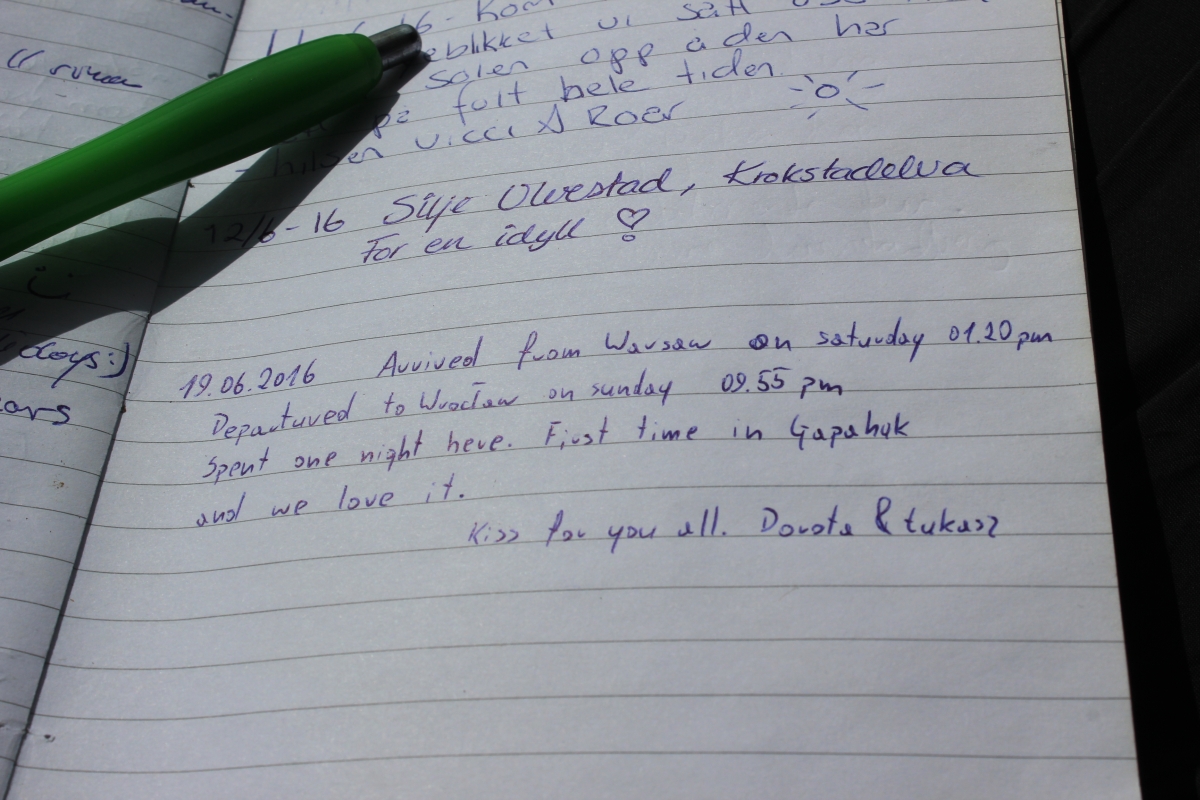 rundt
6-16 - Kom
vi satt
solen opp å den har
fult hele tiden
hilsen Vicci & Roer
12/6-16 Silje Ulvestad, Krokstadelva
For en idyll
days:)
ears
19.06.2016 Arrived from Warsaw on saturday 01.20 pm
Departured to Wrocław on sunday 09.55 pm
Spent one night here. First time in Gapahuk
and we love it.
Kiss for you all. Dorota & Łukasz